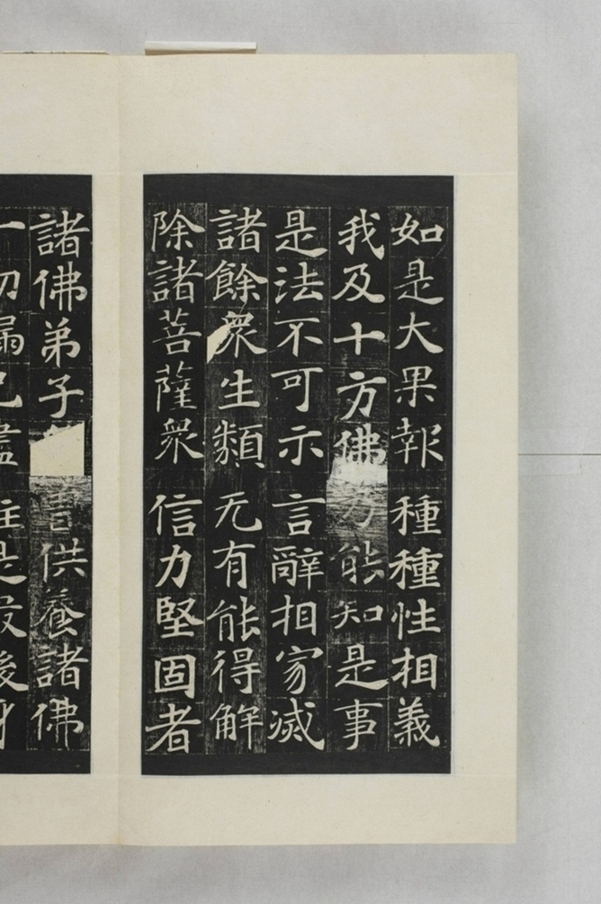 如是大果報 種種性相義
我及十方佛 乃能知是事
是法不可示 言辭相寂滅
諸餘衆生類 无有能得解
除諸菩薩衆 信力堅固者
諸佛弟子 供養諸佛
一切漏已盡 住是最後身